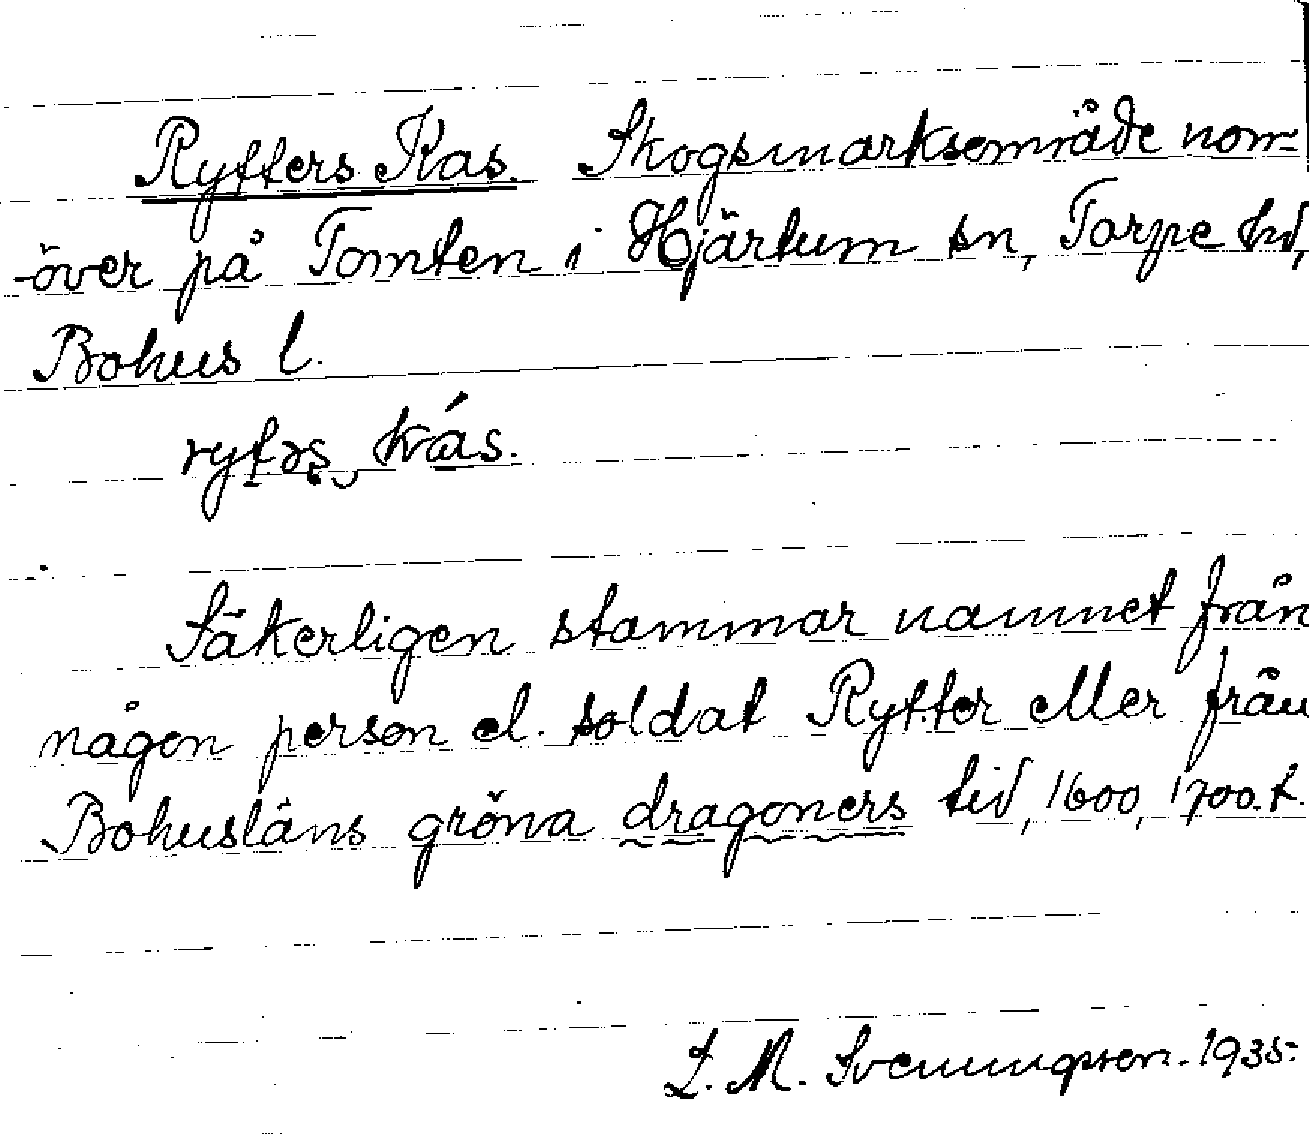 Ryffers Kas. Skogsmarksområde norr-
-över på Tomten i Hjärtum sn, Torpe hd,
Bohus l.
ryfəʂ kás.
Säkerligen stammar namnet från
någon person el. soldat Ryffer eller från
Bohusläns gröna dragoners tid, 1600, 1700.t.
L. M. Svenungsson. 1935.